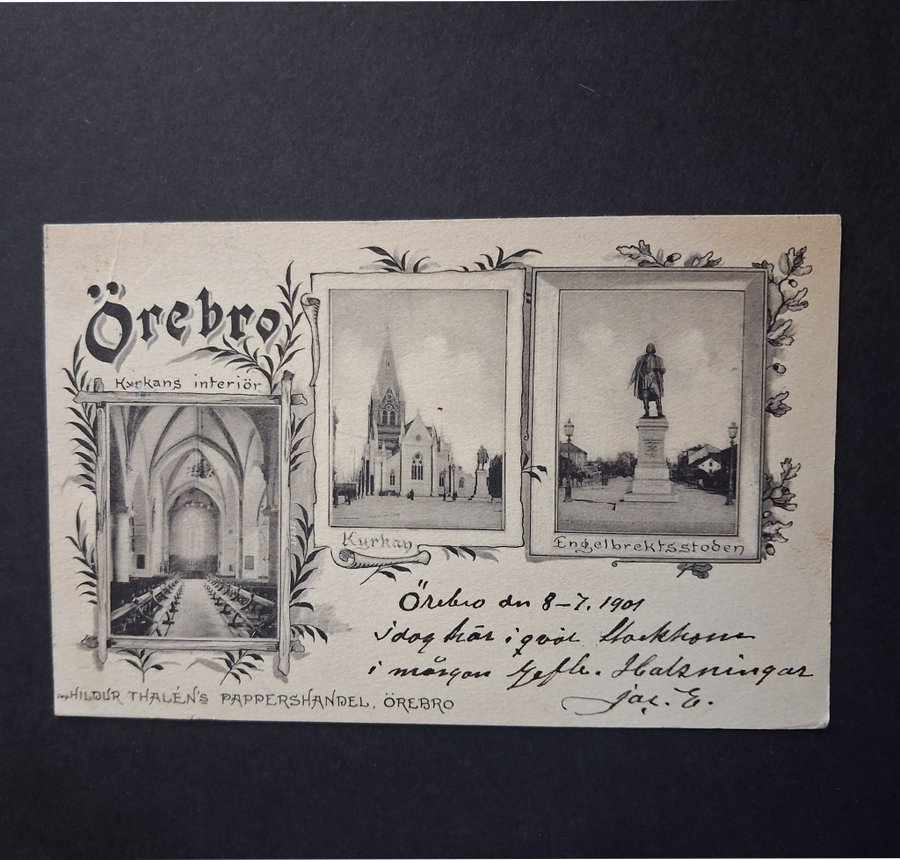 Örebro
Kyrkans interiör
Kyrkan
Engelbrektsstoden
Örebro den 8-7. 1901
idag här i qväl Stockhom
i mårgon Gefle. Halsningar
Jac. E.
HILDUR THALÉN'S PAPPERSHANDEL, ÖREBRO